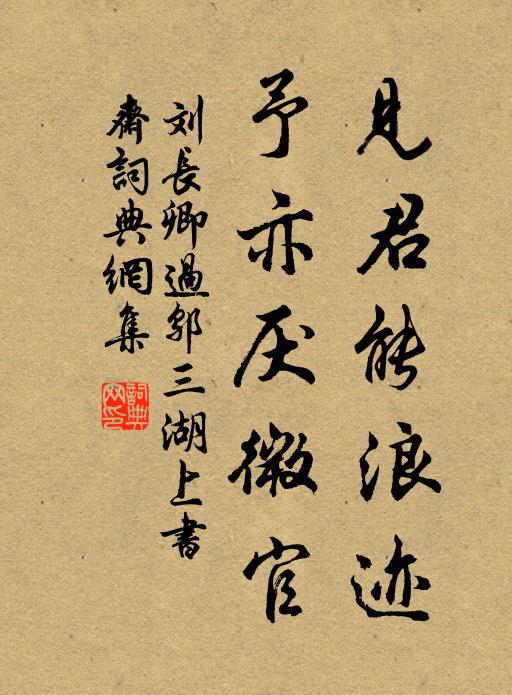 見君能浪迹
予亦厌微官
刘長卿過鄔三湖上書
齋詞典網集
詞典網印